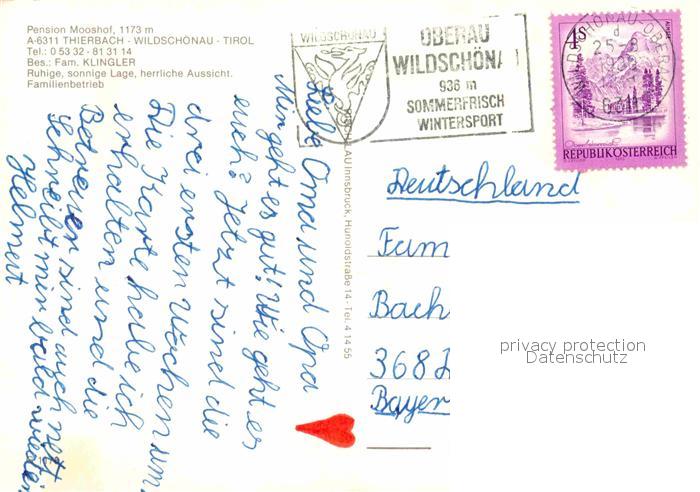 Pension Mooshof, 1173 m
A-6311 THIERBACH - WILDSCHÖNAU - TIROL
Tel.: 0 53 32 - 81 31 14
Bes.: Fam. KLINGLER
Ruhige, sonnige Lage, herrliche Aussicht.
Familienbetrieb
WILDSCHÖNAU
OBERAU
WILDSCHÖNA
936 m
SOMMERFRISCH
WINTERSPORT
WILDSCHÖNAU-OBERA
6311
4s
REPUBLIK ÖSTERREICH
Liebe Oma und Opa
Mir geht es gut! Wie geht es
euch? Jetzt sind die
drei ersten Wochen um.
Die Karte habe ich
erhalten und die
Betreuer sind auch nett
Schreibt mir bald wieder
Helmut
Innsbruck, Hunoldstraße 14 - Tel. 4 14 55
Deutschland
Fam
Bach
3682
Bayer
privacy protection
Datenschutz